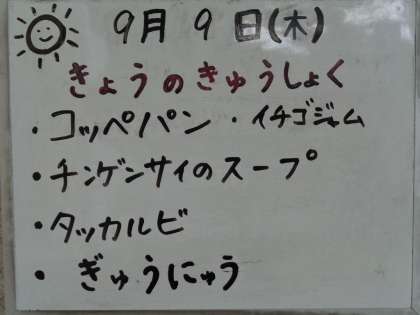 9月 9日(木)
きょうのきゅうしょく
・コッペパン ・イチゴジャム
・チンゲンサイのスープ
・タッカルビ
・ぎゅうにゅう